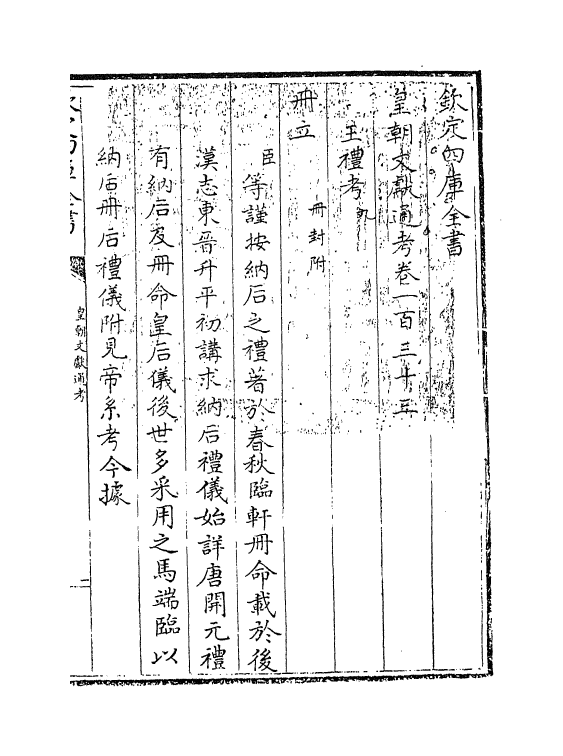 欽定四庫全書
皇朝文獻通考卷一百三十三
王禮考九
冊立 冊封附
臣等謹按納后之禮著於春秋臨軒冊命載於後
漢志東晉升平初講求納后禮儀始詳唐開元禮
有納后及冊命皇后儀後世多采用之馬端臨以
納后冊后禮儀附見帝系考今據
皇朝文獻通考